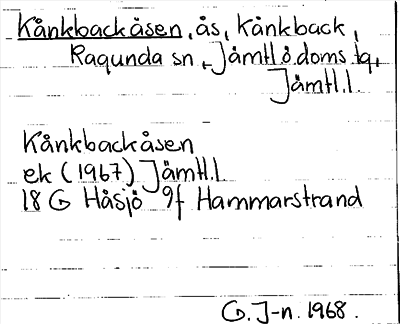 Kånkbackåsen, ås, Kånkback,
Ragunda sn, Jämtl.ö.doms.tq,
Jämtl.l.
Kånkbackåsen
ek (1967) Jämtl.l.
18 G Håsjö 9f Hammarstrand
G. J-n. 1968.